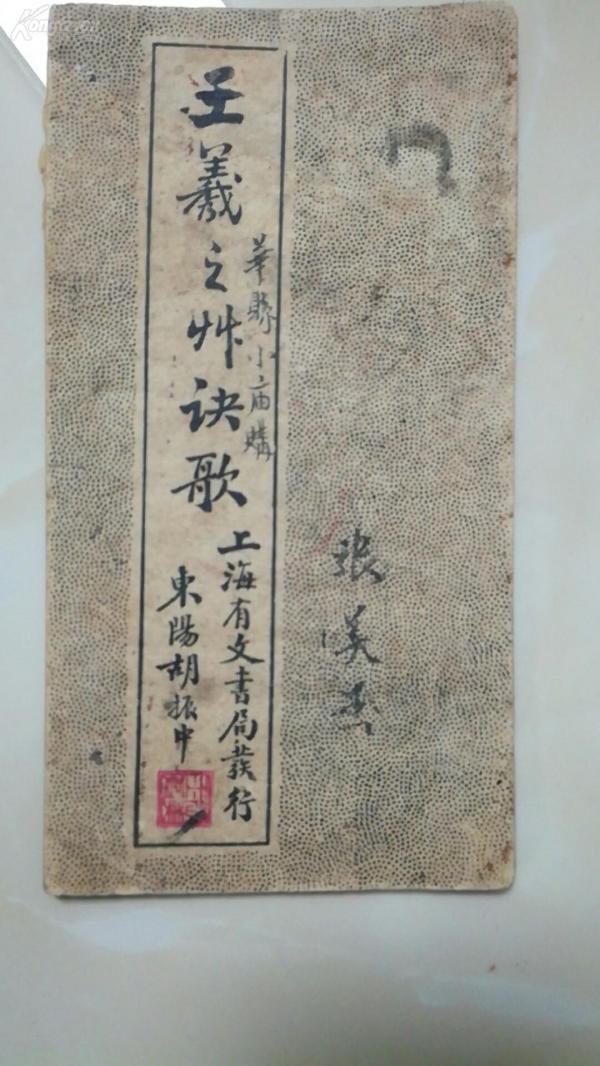 王羲之艸诀歌
華縣小庙購
上海有文書局發行
東陽胡振中
張美杰